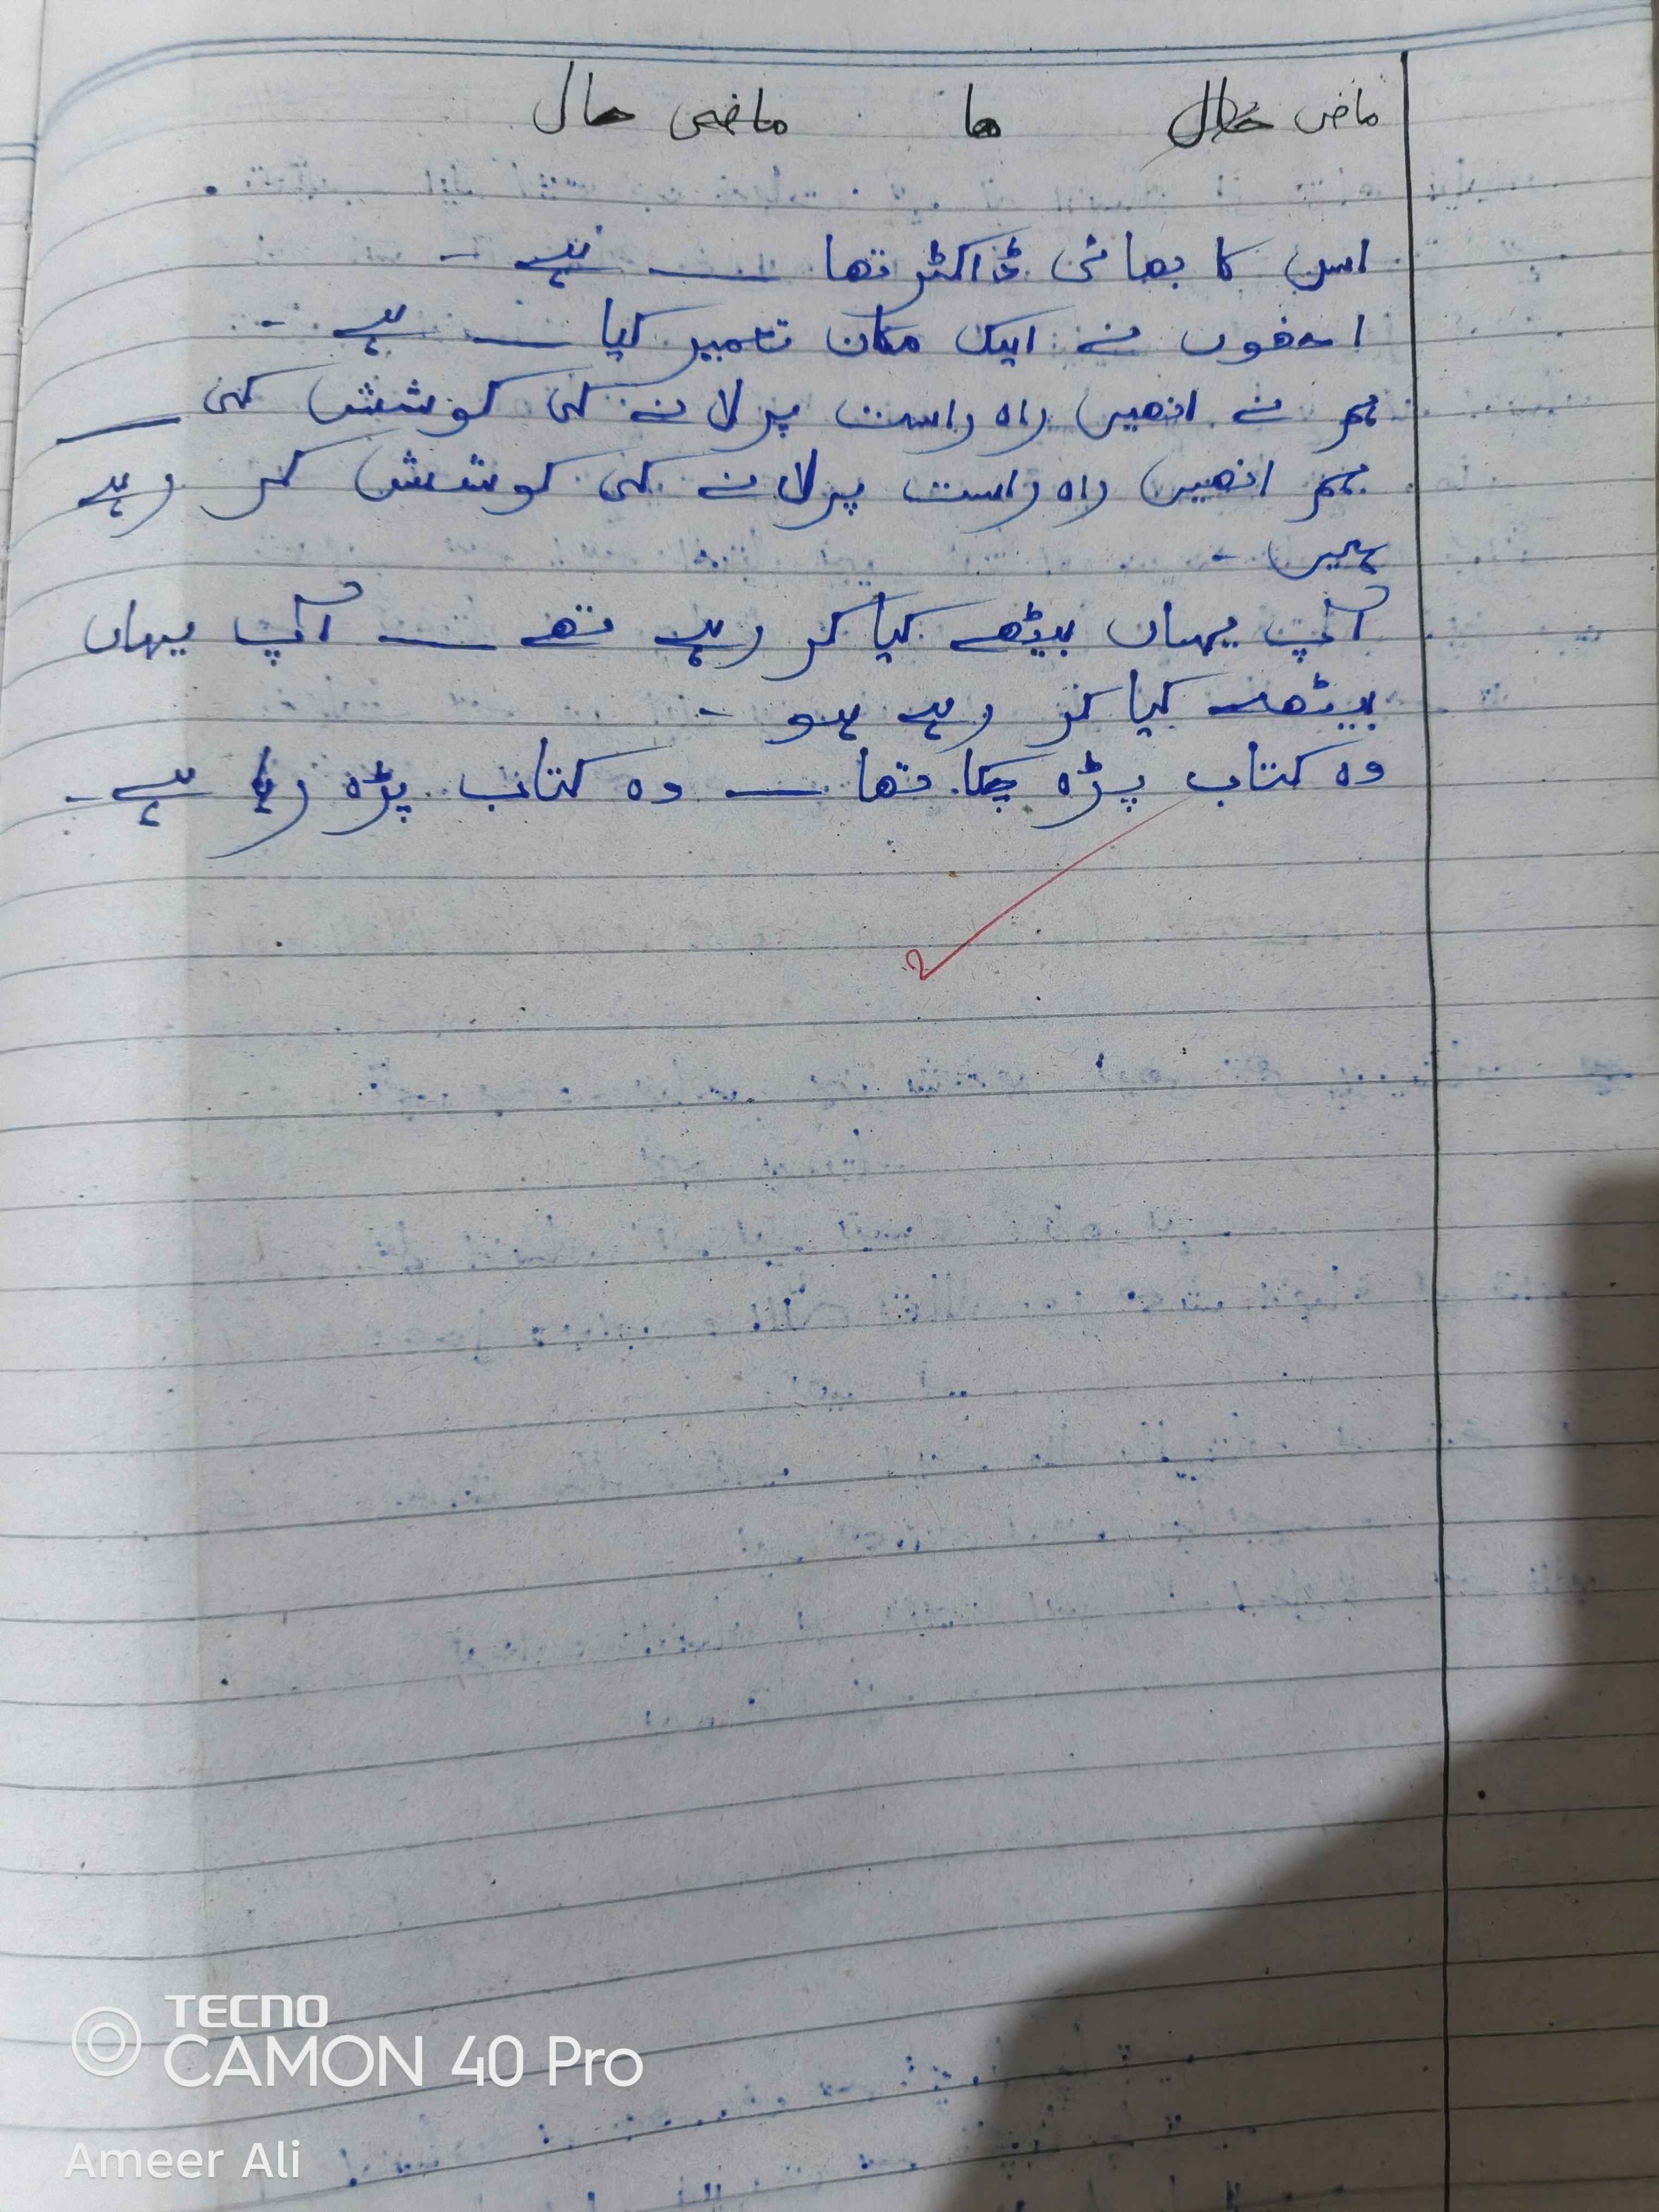 ماضی حال ما ماضی حال
اس کا بھائی ڈاکٹر تھا ــــ ہے -
انھوں نے ایک مکان تعمیر کیا ــــ ہے -
ہم نے انھیں راہ راست پر لانے کی کوشش کی ــــ
ہم انھیں راہ راست پر لانے کی کوشش کر رہے
ہیں -
آپ یہاں بیٹھے کیا کر رہے تھے ــــ آپ یہاں
بیٹھے کیا کر رہے ہو -
وہ کتاب پڑہ چکا تھا ــــ وہ کتاب پڑہ رہا ہے -
TECNO
CAMON 40 Pro
Ameer Ali